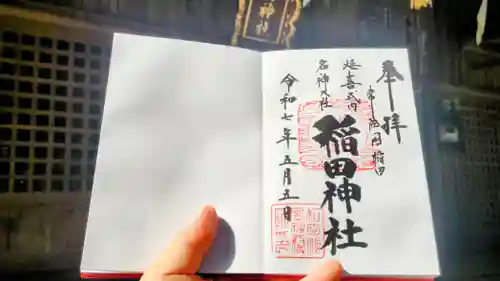 神社
奉拝
常陸国稲田
稲田神社
延喜式内
名神大社
令和七年五月五日